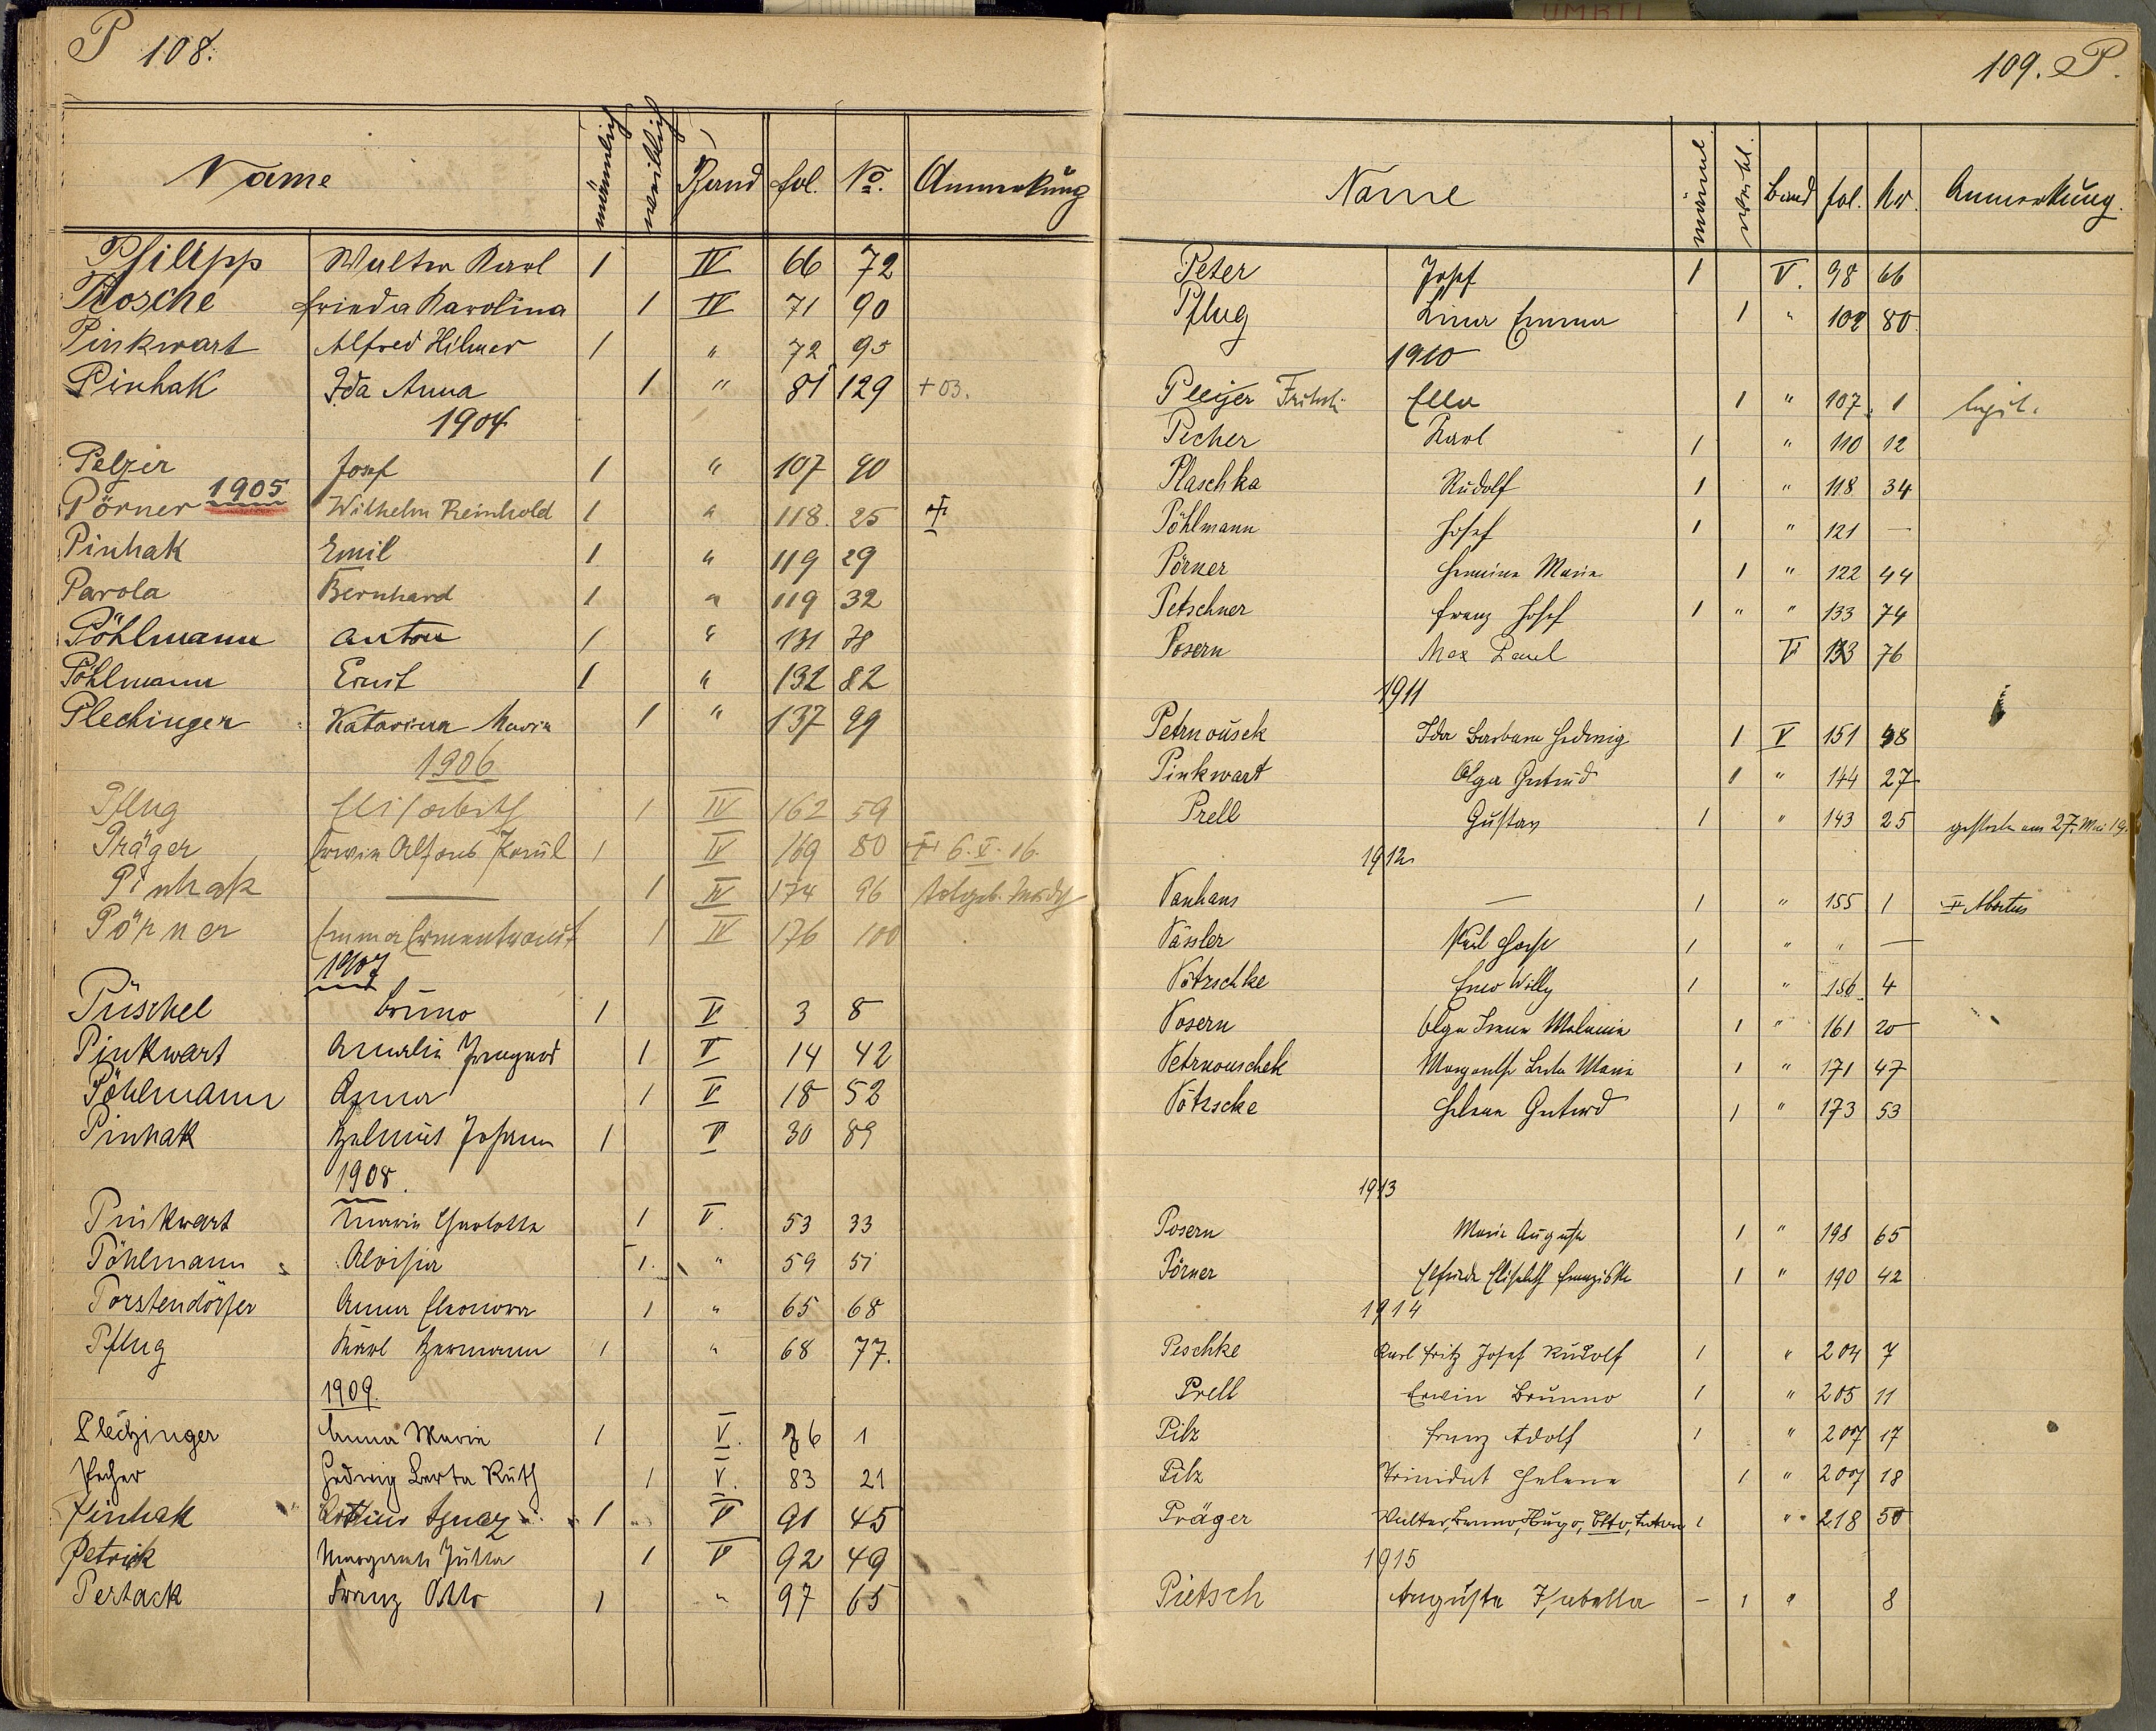 P 108.
Name männlich weiblich Band fol. No. Anmerkung
Philipp Walter Karl 1 IV 66 72
Posche Frieda Karolina 1 IV 71 90
Pinkwart Alfred Hilmar 1 " 72 95
Pinhak Ida Anna 1 " 81 129 + 03.
1904
Pelzer Josef 1 " 107 90
1905
Pörner Wilhelm Reinhold 1 " 118. 25 +
Pinhak Emil 1 " 119 29
Parola Bernhard 1 " 119 32
Pöhlmann Anton 1 " 131 78
Pöhlmann Ernst 1 " 132 82
Plechinger Katarina Maria 1 " 137 99
1906
Pflug Elisabeth 1 IV 162 59
Präger Erwin Alfons 1 IV 169 80 + 6. X. 16.
Pinhak — 1 IV 174 96 totgeb.
Pörner Emma 1 IV 176 100
1907
Püschel Bruno 1 V 3 8
Pinkwart Amalia 1 V 14 42
Pöhlmann Anna 1 V 18 52
Pinhak Johann 1 V 30 89
1908.
Pinkwart Maria Charlotte 1 V. 53 33
Pöhlmann Aloisia 1. " 59 51
Porstendörfer Anna Eleonora 1 " 65 68
Pflug Karl Hermann 1 " 68 77.
1909.
Pletzinger Anna Maria 1 V. 76 1
Pecher Hedwig Berta Ruth 1 V. 83 21
Pinhak Arthur Ignaz 1 V 91 45
Petrik Margareta Jutta 1 V 92 49
Pertack Franz Otto 1 " 97 65
109. P.
Name männl. weibl. Band fol. No. Anmerkung.
Peter Josef 1 V. 98 66
Pflug Lina Emma 1 " 102 80
1910
Pleijer Ella 1 " 107. 1 legit.
Pecher Karl 1 " 110 12
Plaschka Rudolf 1 " 118 34
Pöhlmann Josef 1 " 121 —
Pörner Hermina Maria 1 " 122 44
Petschner Franz Josef 1 " " 133 74
Posern Max Paul V 133 76
1911
Petrnousek Ida Barbara Hedwig 1 V 151 48
Pinkwart Olga Gertrud 1 " 144 27
Prell Gustav 1 " 143 25 gestorben am 27. Mai 19.
1912
Panhans — 1 " 155 1 + Abortus
Pässler Karl 1 " " —
Pötzschke Willy 1 " 156. 4
Posern Olga Irena Melanie 1 " 161 20
Petrnouschek Margarethe Maria 1 " 171 47
Pötzscke Helena Gertrud 1 " 173 53
1913
Posern Maria Augusta 1 " 198 65
Pörner Elfrieda Elisabeth Franziska 1 " 190 42
1914
Peschke Karl Fritz Josef Rudolf 1 " 204 7
Prell Erwin Brunno 1 " 205 11
Pilz Franz Adolf 1 " 207 17
Pilz Trinidat Helene 1 " 207 18
Präger Walter, Benno, Hugo, Otto, Anton 1 " 218 50
1915
Pietsch Augusta Isabella — 1 " 8